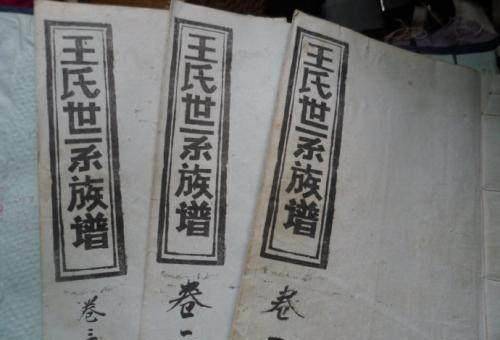 王氏世系族谱
卷三
王氏世系族谱
卷一
王氏世系族谱
卷